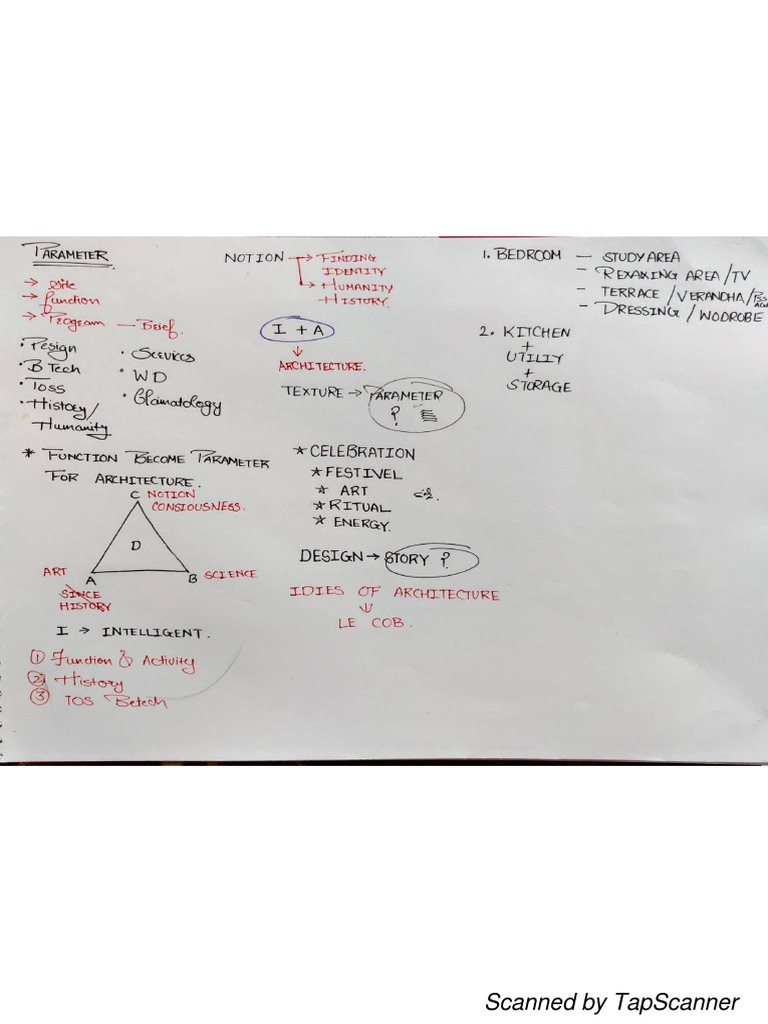 PARAMETER
→ Site
→ function
→ Program — Brief.
• Design
• B Tech
• Toss
• History/
Humanity
• Services
• WD
• Clamatology
* FUNCTION BECOME PARAMETER
FOR ARCHITECTURE.
C NOTION
CONSIOUSNESS.
D
ART
A
B SCIENCE
SINCE
HISTORY
I → INTELLIGENT.
① Function & Activity
② History
③ TOS Betech
NOTION → FINDING
IDENTITY
→ HUMANITY
HISTORY.
I + A
↓
ARCHITECTURE.
TEXTURE → PARAMETER
?
* CELEBRATION
* FESTIVEL
* ART
* RITUAL
* ENERGY.
DESIGN → STORY ?
IDIES OF ARCHITECTURE
↓
LE COB.
1. BEDROOM — STUDY AREA
— REXAXING AREA/TV
— TERRACE/VERANDHA/
— DRESSING/WODROBE
2. KITCHEN
+
UTILIY
+
STORAGE
Scanned by TapScanner